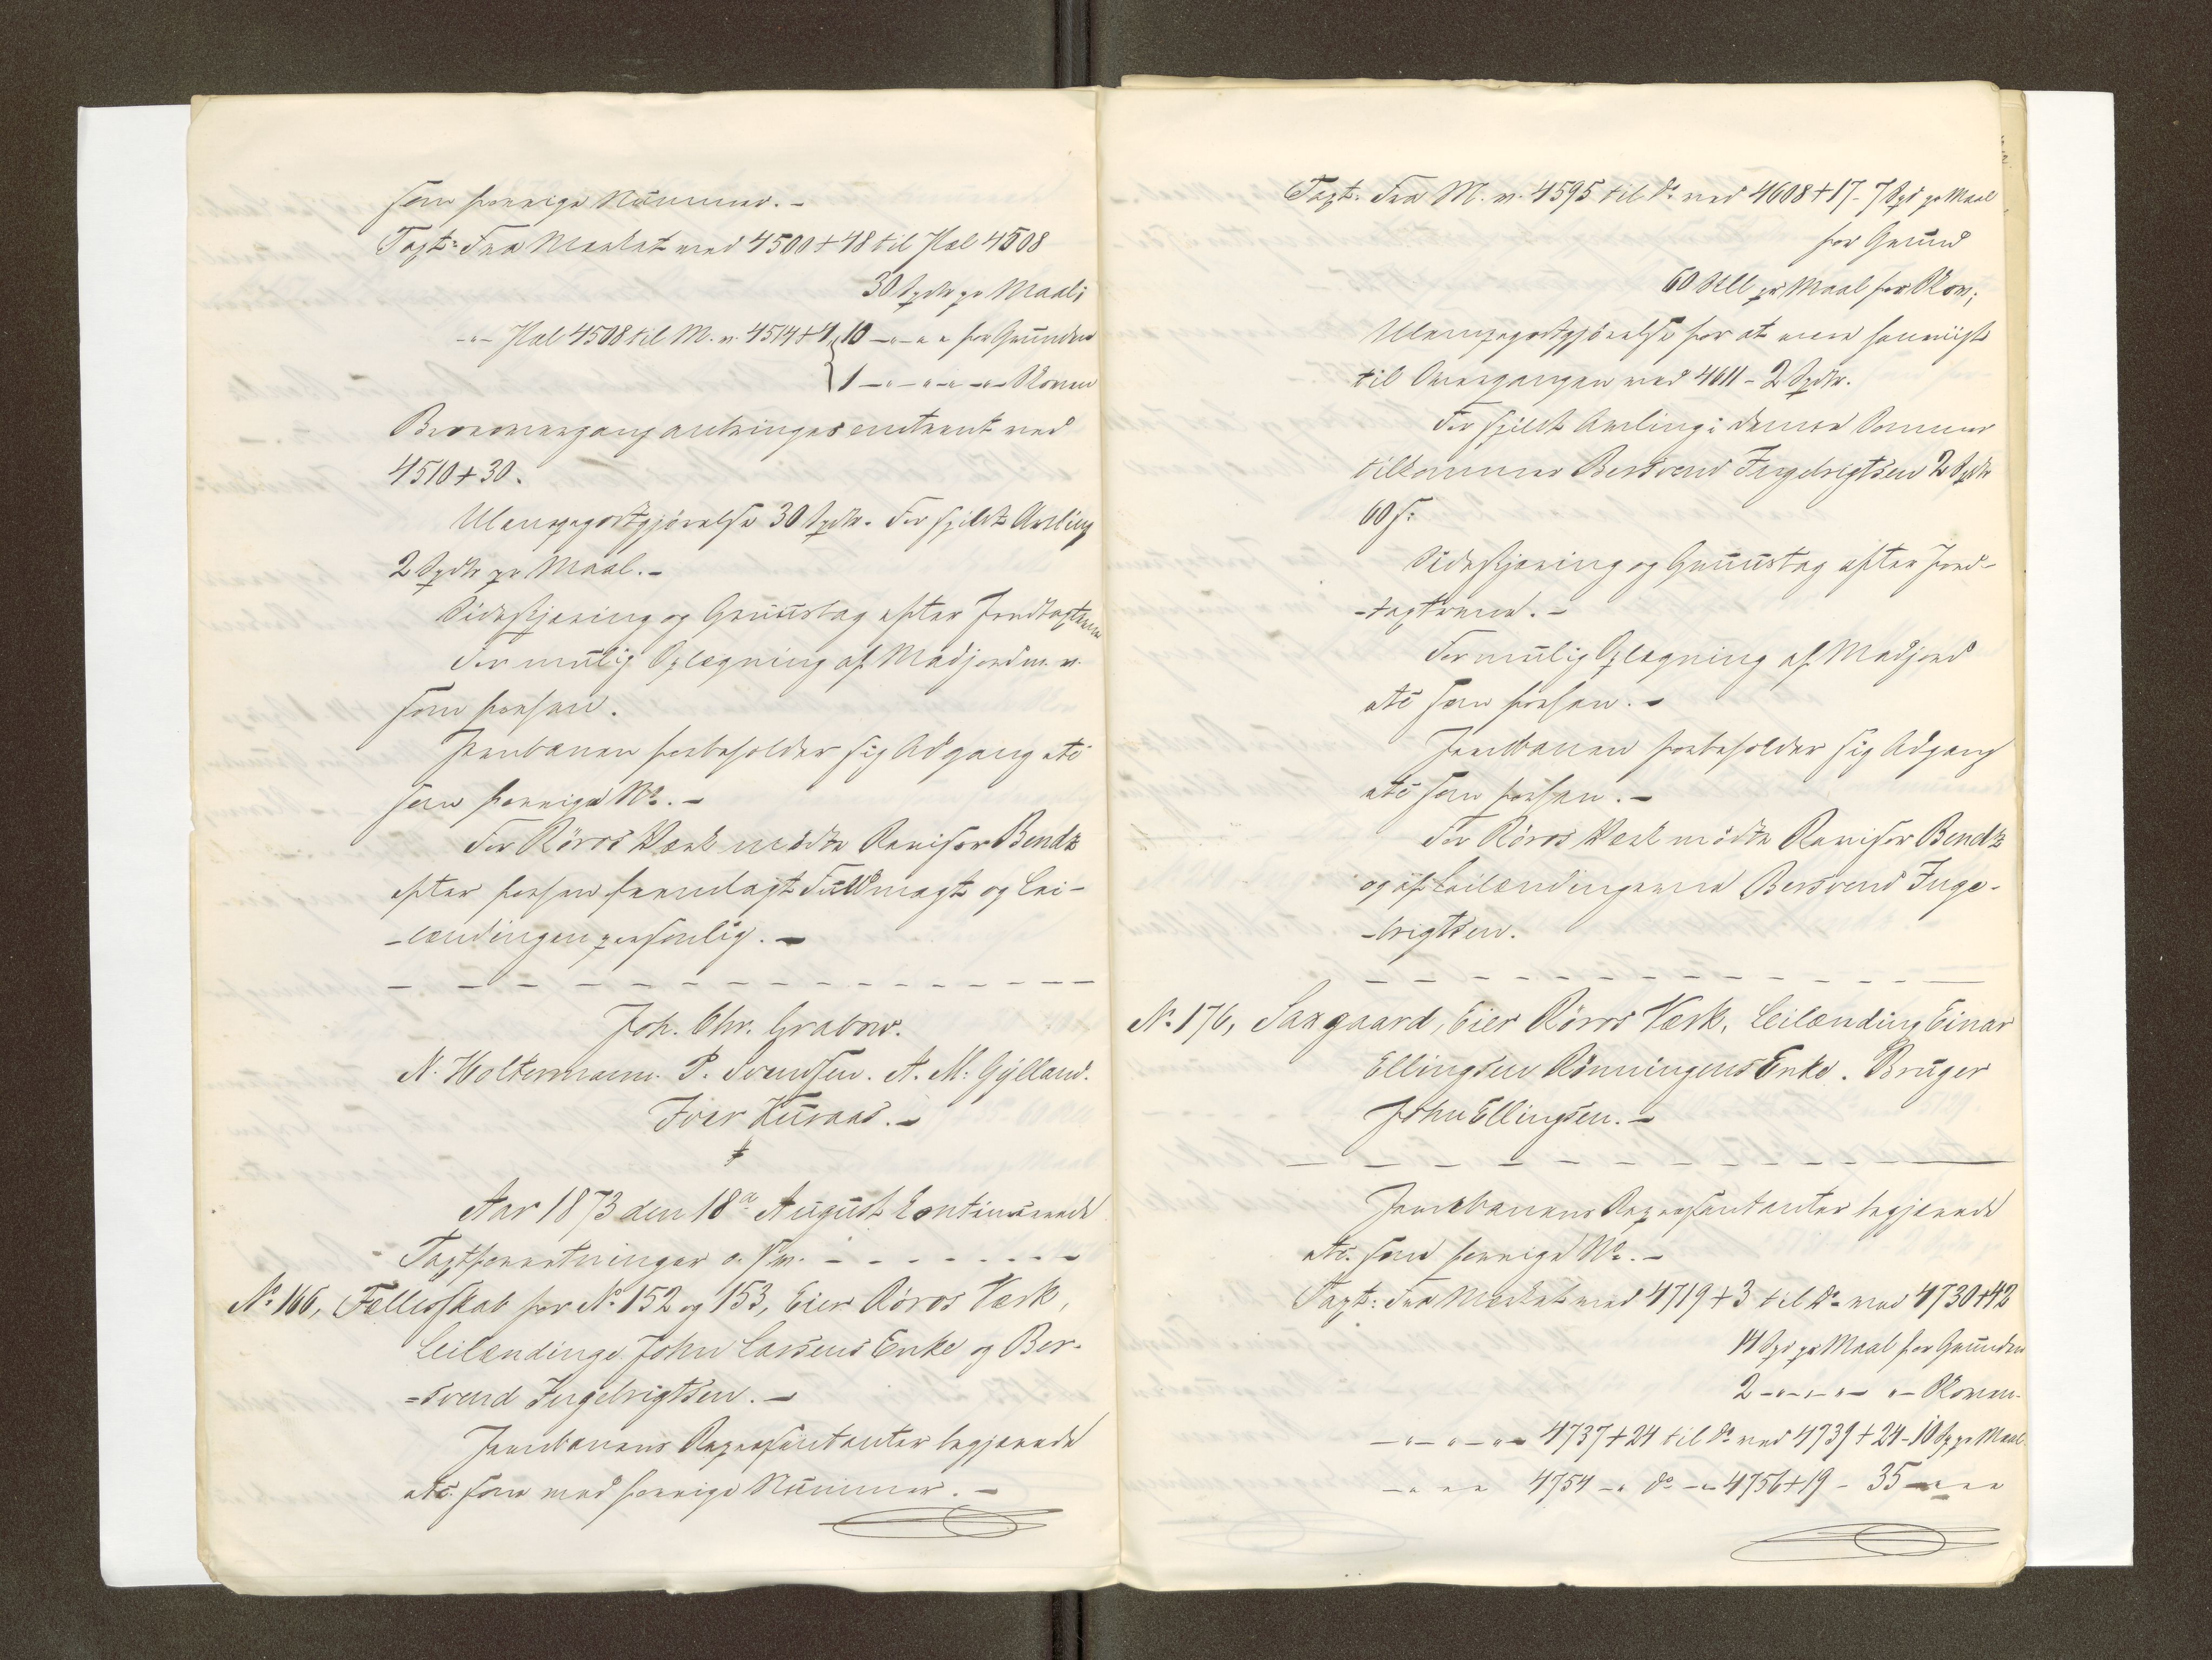 som forrige Nummer. -
Taxt: Fra Mærket ved 4500 + 48 til Pæl 4508
30 Spdlr pr Maal;
-"- Pæl 4508 til M. v. 4514 + 4, 10 -"-"-" for Grunden
1 -"-"-"-"- Skoven
Broovergang anbringes omtrent ved
4510 + 30.
Ulempegodtgjörelse 30 Spdlr. For spildt Avling
2 Spdlr pr Maal. -
Sideskjæring og Gruustag efter Jordtaxterne
For mulig Oplægning af Madjord m. v.
som forhen.
Jernbanen forbeholder sig Adgang etc
som forrige No. -
For Röros Værk mödte Revisor Bendz
efter forhen fremlagt Fuldmagt og Lei-
-lændingen personlig. -
Joh. Chr. Grabow.
N. Holtermann. P. Svendsen. A. M. Gylland.
Iver Kuraas. -
Aar 1873 den 18de August kontinuerede
Taxtforretninger o. s. v. - - - - - - -
No 166, Fællesskab for No 152 og 153, Eier Röros Værk,
Leilændinge John Larsens Enke og Ber-
=svend Ingebrigtsen. -
Jernbanens Repræsentanter begjærede
etc. som ved forrige Nummer. -
Taxt: Fra M. v. 4595 til do ved 4608 + 17 - 7 Spd pr Maal
for Grund
60 Skl pr Maal for Skov;
Ulempegodtgjörelse for at være henviist
til Overgangen ved 4611 - 2 Spdlr.
For spildt Avling i denne Sommer
tilkommer Bersvend Ingebrigtsen 2 Spdlr
60 s.
Sideskjæring og Gruustag efter Jord-
-taxterne. -
For mulig Oplægning af Madjord
etc som forhen. -
Jernbanen forbeholder sig Adgang
etc som forhen. -
For Röros Værk mödte Revisor Bendz
og af Leilændingerne Bersvend Inge-
-brigtsen.
No 176, Saxgaard, Eier Röros Værk, Leilænding Einar
Ellingsen Rönningens Enke. Bruger
John Ellingsen. -
Jernbanens Repræsentanter begjærede
etc. som forrige No. -
Taxt: Fra Mærket ved 4719 + 3 til do ved 4730 + 42
14 Spd pr Maal for Grunden
2 -"-"-"- "- Skoven
-"-"-"- 4737 + 24 til do ved 4739 + 24 - 10 Sp pr Maal
-"-"-" 4754 -"- do -"- 4756 + 19 - 35 -"-"-"